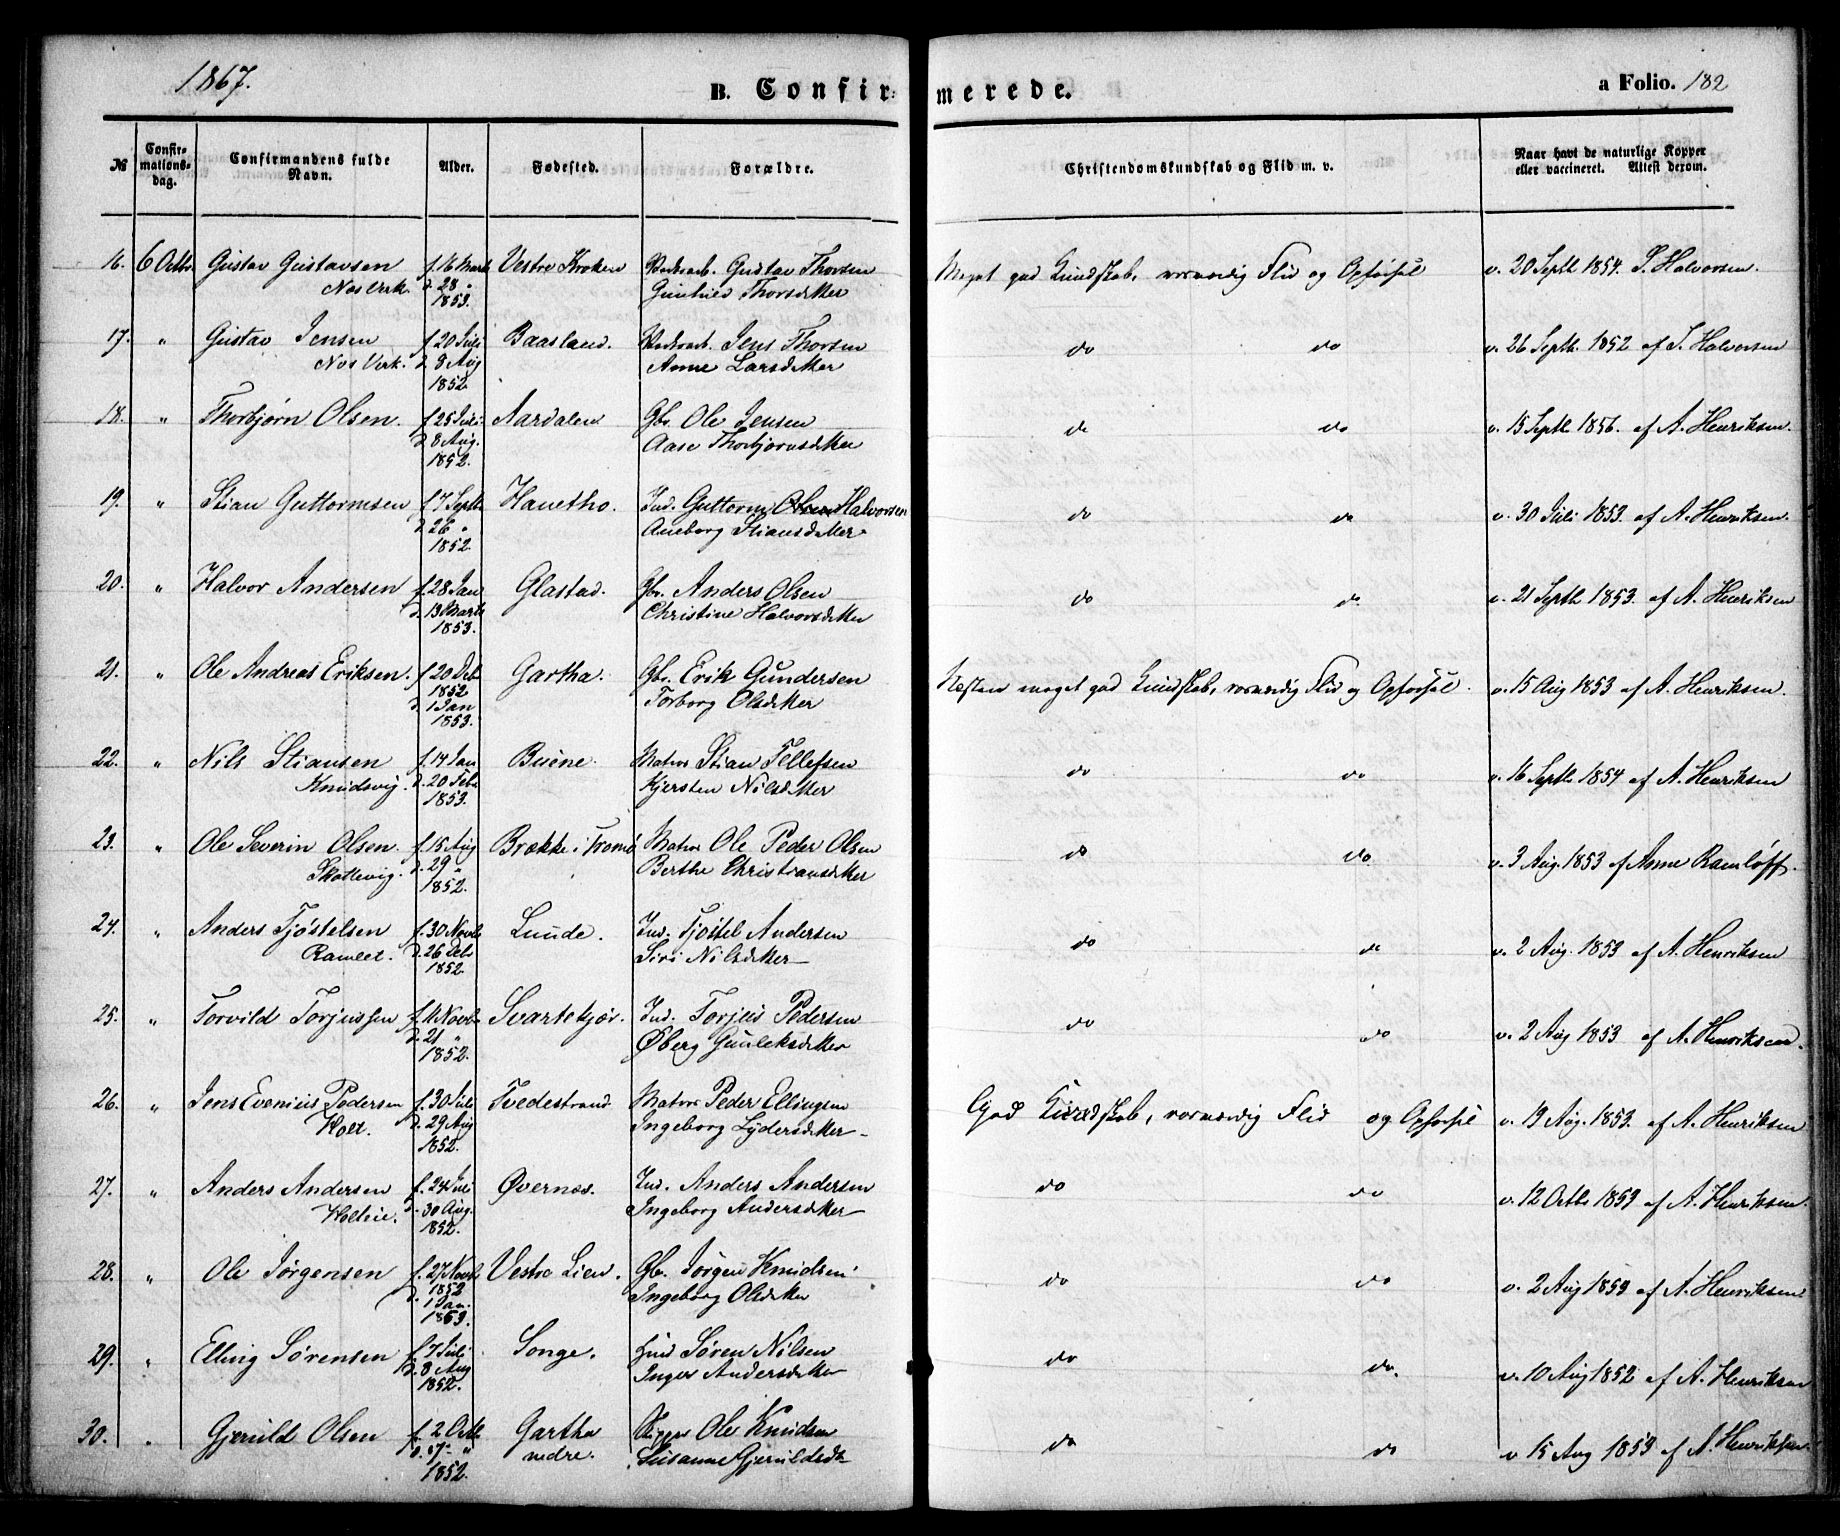 1867.
B. Confir-
merede.
a Folio. 182
№
Confir-
mations-
dag.
Confirmandens fulde
Navn.
Alder.
Fødested.
Forældre.
Christendomskundskab og Flid m. v.
Naar havt de naturlige Kopper
eller vaccineret. Attest derom.
16. 6 Octbr. Gustav Gustavsen f. 16 Marts Vestre Kroken Gustav Thorsen Meget god Kundskab, vornværdig Flid og Opførsel v. 20 Septb 1854. T. Halvorsen.
Nes Verk. d. 28 " Gunhild Thorsdatter
1853.
17. " Gustav Jensen f. 20 Juli Baasland. Jens Thorsen do do v. 26 Septb. 1852 af T. Halvorsen
Nes Verk. d. 8 Aug Anne Larsdatter
1852
18. " Thorbjørn Olsen. f. 25 Juli Aardalen Gbr. Ole Jensen do do v. 15 Septb 1856. af A. Henriksen.
d. 8 Aug. Aase Thorbjørnsdatter
1852.
19. " Stian Guttormsen f. 7 Septb Hanetho. Ind. Guttorm Halvorsen do do v. 30 Juli 1853. af A. Henriksen.
d. 26 " Anneborg Stiansdatter
1852
20. " Halvor Andersen f. 28 Jan Glastad. Gbr. Anders Olsen do do v. 21 Septb 1853. af A. Henriksen
d. 13 Marts Christine Halvorsdatter
1853.
21. " Ole Andreas Eriksen. f. 20 Deb Gartha. Gbr. Erik Gundersen Næsten meget god Kundskab, vornværdig Flid og Opførsel. v. 15 Aug 1853 af A. Henriksen.
1852 Torborg Olsdatter
d. 1 Jan
1853.
22. " Nils Stiansen f. 14 Jan Buene. Matros Stian Tellefsen do do v. 16 Septb 1854 af A. Henriksen
Knudsvig. d. 20 Feb. Kjersten Nilsdatter
1853.
23. " Ole Severin Olsen. f. 15 Aug Brække i Tromø Matros Ole Peder Olsen do do v. 3 Aug. 1853 af Anne Ramløff.
Skottevig. d. 29 " Berthe Christiansdatter
1852.
24. " Anders Tjøstelsen f. 30 Novb Lunde. Ind. Tjøstel Andersen do do v. 2 Aug. 1853 af A. Henriksen
Ramlet. d. 26 Deb Siri Nilsdatter
1852.
25. " Torvild Torjussen f. 11 Novb Svartekjær. Ind. Torjus Pedersen do do v. 2 Aug 1853 af A. Henriksen.
d. 21 " Øberg Gunleksdatter
1852.
26. " Jens Evenius Pedersen f. 30 Juli Tvedestrand Matros Peder Ellingsen God Kundskab, vornværdig Flid og Opførsel v. 13 Aug. 1853. af A. Henriksen
Holt. d. 29 Aug Ingeborg Lydersdatter
1852.
27. " Anders Andersen f. 24 Juli Øvernæs. Ind. Anders Andersen do do v. 12 Octb. 1853 af A. Henriksen.
d. 30 Aug. Ingeborg Andersdatter
1852.
28. " Ole Jørgensen f. 27 Novb Vestre Lien. Gbr. Jørgen Knudsen do do v. 2 Aug 1853 af A. Henriksen
1852 Ingeborg Olsdatter
d. 1 Jan.
1853.
29. " Elling Sørensen f. 7 Juli Songe. Søren Nilsen do do. v. 10 Aug 1852 af A. Henriksen
d. 8 Aug Inger Andersdatter
1852.
30. " Gjeruld Olsen f. 2 Octb Gartha Ole Knudsen do do v. 15 Aug 1853 af A. Henriksen
d. 17 " nedre. Susanne Gjerulds dt
1852.